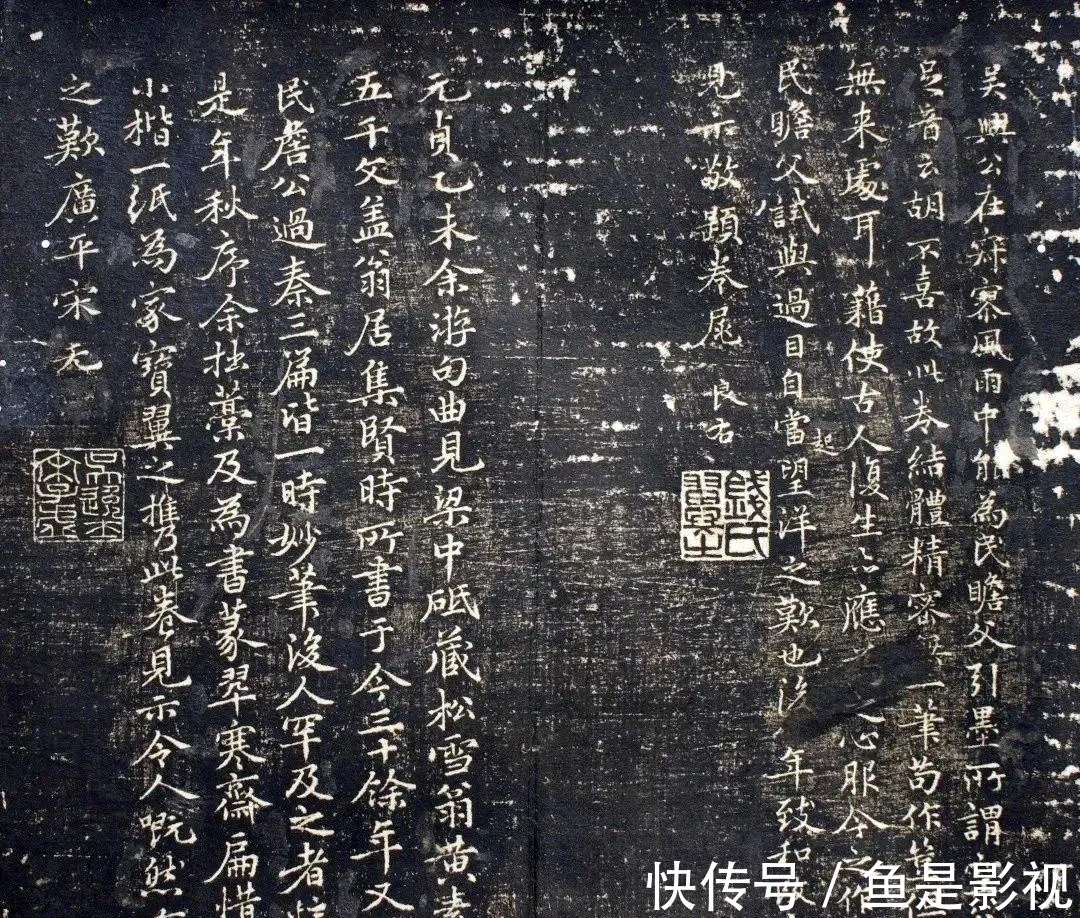 吴興公在寂寥風雨中能為民瞻父引墨所謂
足音云胡不喜故此券結體精密無一筆苟作
無来處耳藉使古人復生亦應心服今之作
民瞻父試與過目自當起望洋之歎也後年致和
見示敬題卷尾良右
錢氏翼之
元貞乙未余游句曲見梁中砥藏松雪翁黄素
五千文盖翁居集賢時所書于今三十餘年又
民詹公過秦三篇皆一時妙筆後人罕及之者
是年秋序余拙藁及為書篆翠寒齋扁惜
小楷一紙為家寶翼之攜此卷見示令人嘅然
之歎廣平宋无
快传号 / 鱼是影视